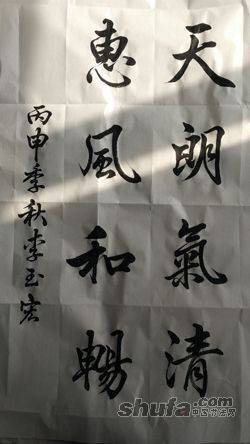 天朗氣清
惠風和暢
丙申季秋李玉宏
shufa.com
中国书法网